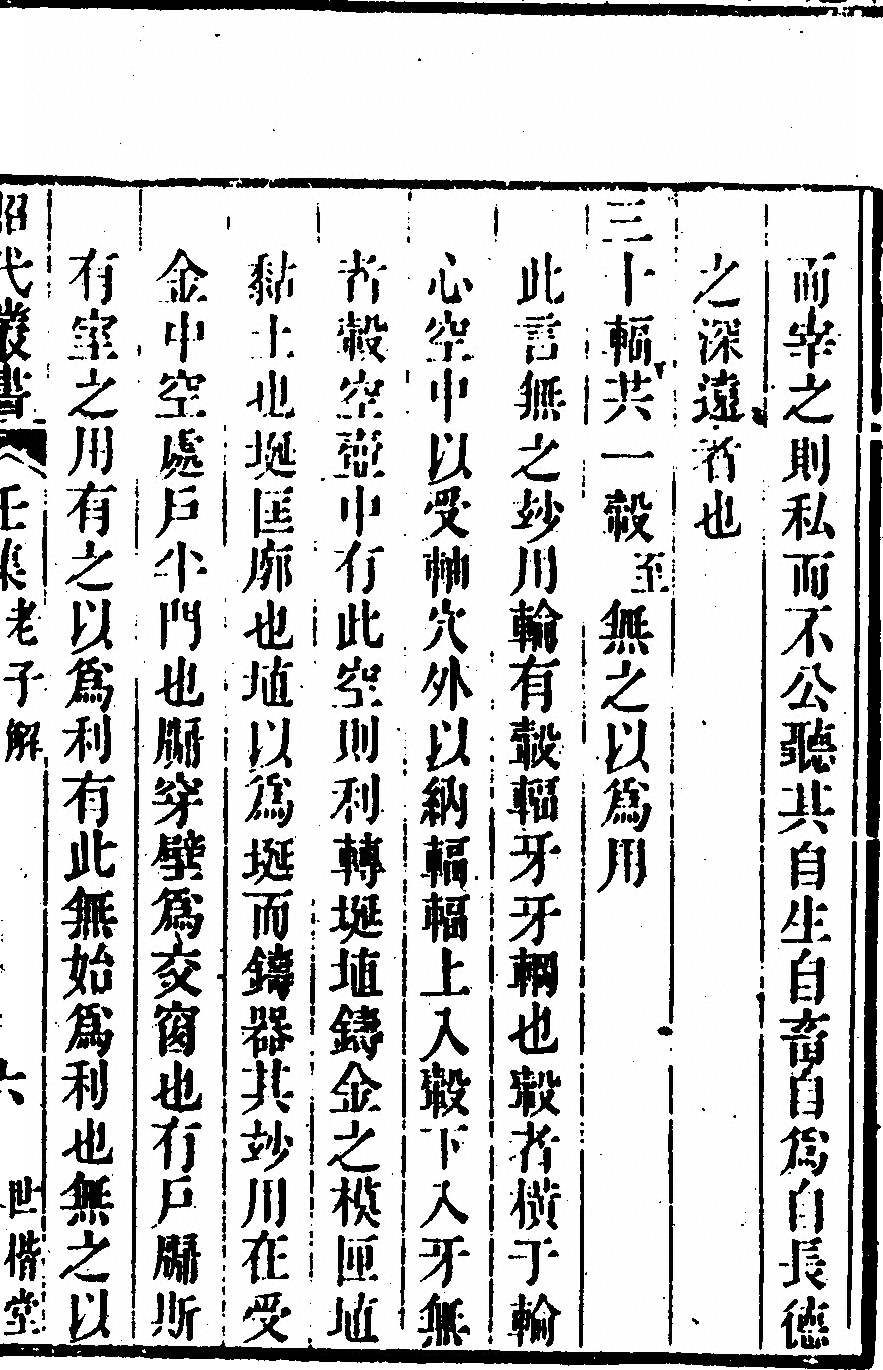 而宰之則私而不公聽其自生自畜自爲自長德
之深遠者也
三十輻共一轂至無之以爲用
此言無之妙用輪有轂輻牙牙輞也轂者橫于輪
心空中以受軸穴外以納輻輻上入轂下入牙無
者轂空壺中有此空則利轉埏埴鑄金之模匣埴
黏土也埏匡廓也埴以爲埏而鑄器其妙用在受
金中空處戶半門也牖穿壁爲交窗也有戶牖斯
有室之用有之以爲利有此無始爲利也無之以
昭代叢書 壬集 老子解 六 世楷堂